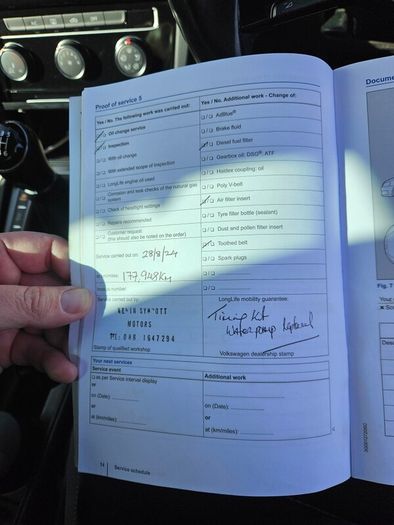 Proof of service 5
Yes / No. The following work was carried out:
Oil change service
Inspection
With oil change
With extended scope of inspection
LongLife engine oil used
Corrosion and leak checks of the natural gas
system
Check of headlight settings
Repairs recommended
Customer request
(this should also be noted on the order)
Service carried out on: 28/8/24
177,948km
Service carried out by:
MOTORS
1647294
Stamp of qualified workshop
Yes / No. Additional work - Change of:
AdBlue®
Brake fluid
Diesel fuel filter
Gearbox oil: DSG®, ATF
Haldex coupling: oil
Poly V-belt
Air filter insert
Tyre filler bottle (sealant)
Dust and pollen filter insert
Toothed belt
Spark plugs
LongLife mobility guarantee:
Timing Kit
Water pump Replaced
Volkswagen dealership stamp
Your next services
Service event
as per Service interval display
or
on (Date):
or
at (km/miles):
Additional work
on (Date):
or
at (km/miles):
14 Service schedule
Docume
Fig. 7
Your
Desc